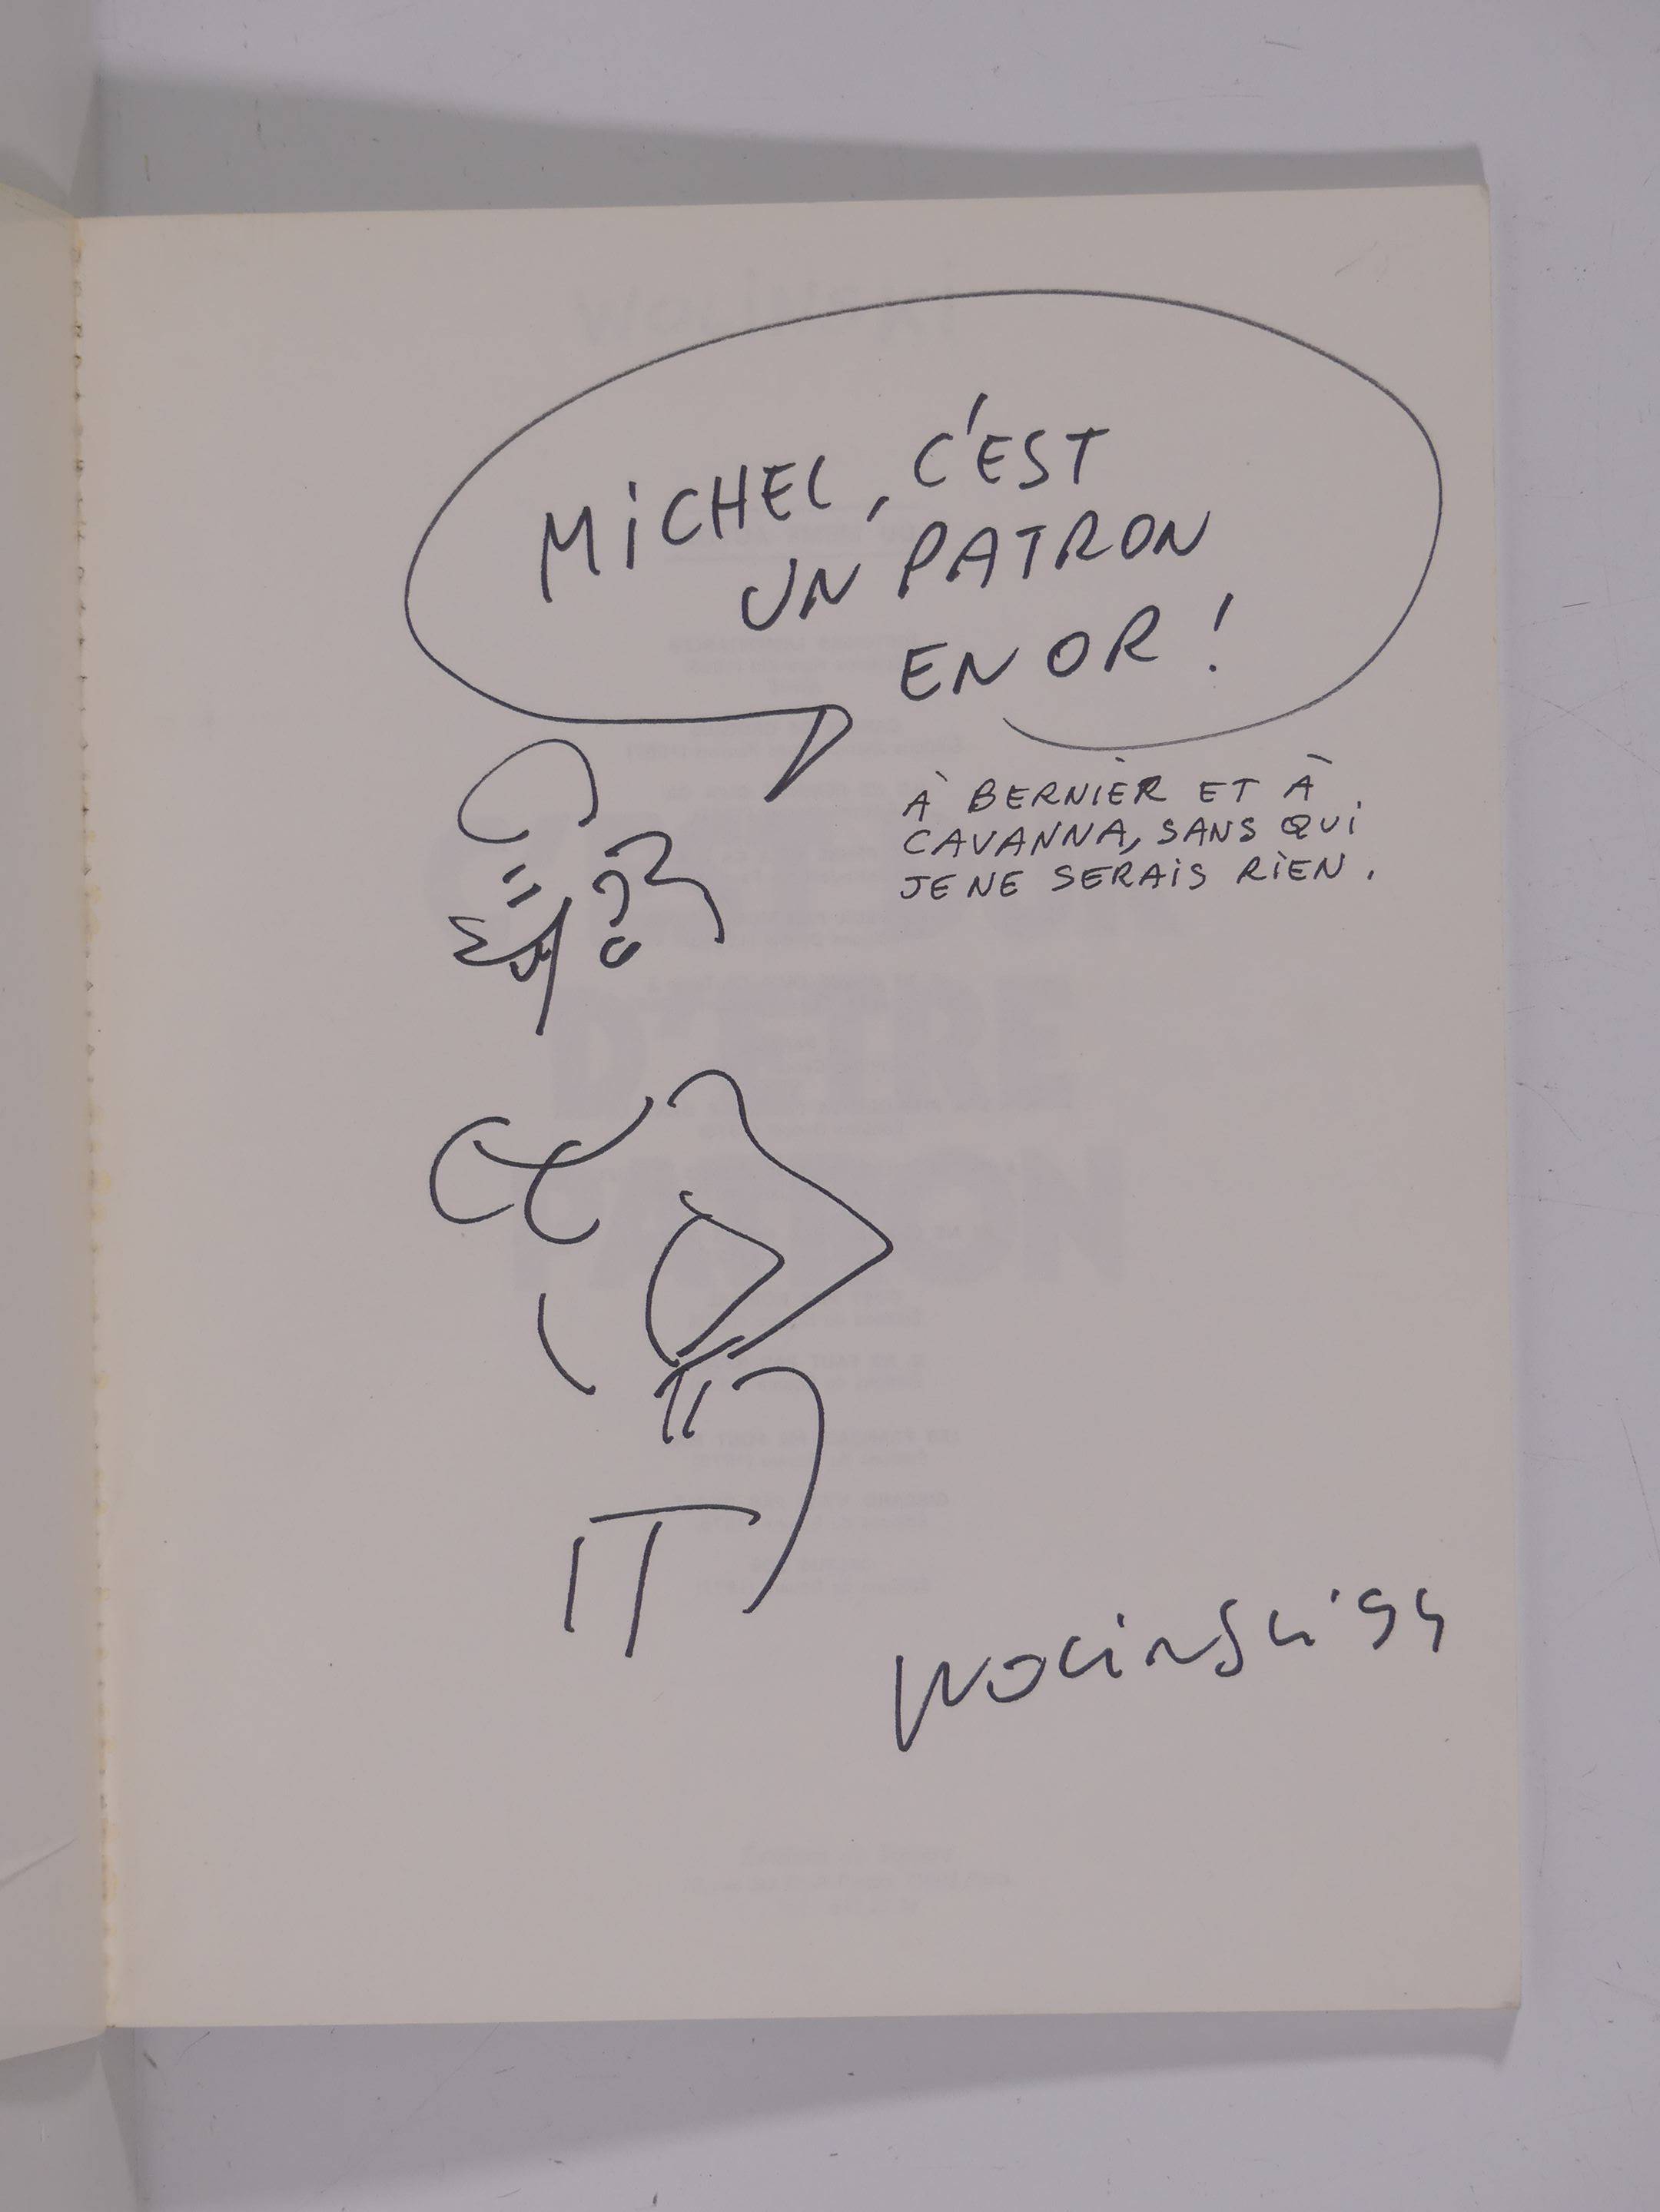 MiCHEL, C'EST
UN PATRON
EN OR !
À BERNIER ET À
CAVANNA, SANS QUI
JE NE SERAIS RIEN.
WOLINSKI '94
D'ÊTRE
PATRON